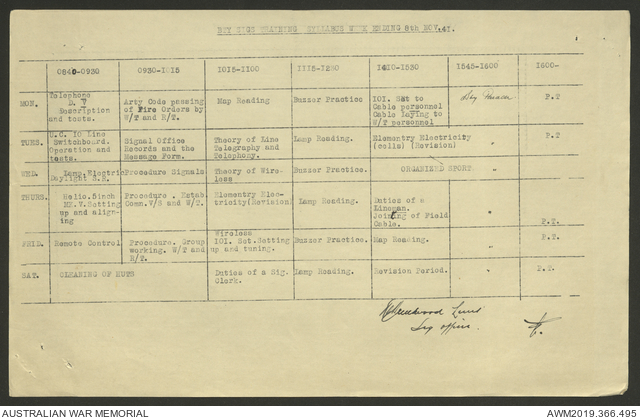 BTY SIGS TRAINING SYLLABUS WEEK ENDING 8th NOV.41.
0840-0930 0930-1015 1015-1100 1115-1230 1410-1530 1545-1600 1600-
MON. Telephone D. V Description and tests. Arty Code passing of Fire Orders by W/T and R/T. Map Reading Buzzer Practice 101. Set to Cable personnel Cable Laying to W/T personnel P.T
TUES. U.C. 10 Line Switchboard. Operation and tests. Signal Office Records and the Message Form. Theory of Line Telegraphy and Telephony. Lamp Reading. Elementry Electricity (cells) (Revision) " P.T
WED. Lamp Electric Daylight S.S. Procedure Signals Theory of Wire-less Buzzer Practice. ORGANIZED SPORT
THURS. Helio. 5inch MK.V.Setting up and align-ing Procedure . Estab. Comn.V/S and W/T. Elementry Elec-tricity(Revision) Lamp Reading. Duties of a Lineman. Jointing of Field Cable. " P.T.
FRID. Remote Control Procedure. Group working. W/T and R/T. Wireless 101. Set.Setting up and tuning. Buzzer Practice. Map Reading. " P.T.
SAT. CLEANING OF HUTS Duties of a Sig. Clerk. Lamp Reading. Revision Period. " P.T.
Lieut
Sig officer.
AUSTRALIAN WAR MEMORIAL AWM2019.366.495